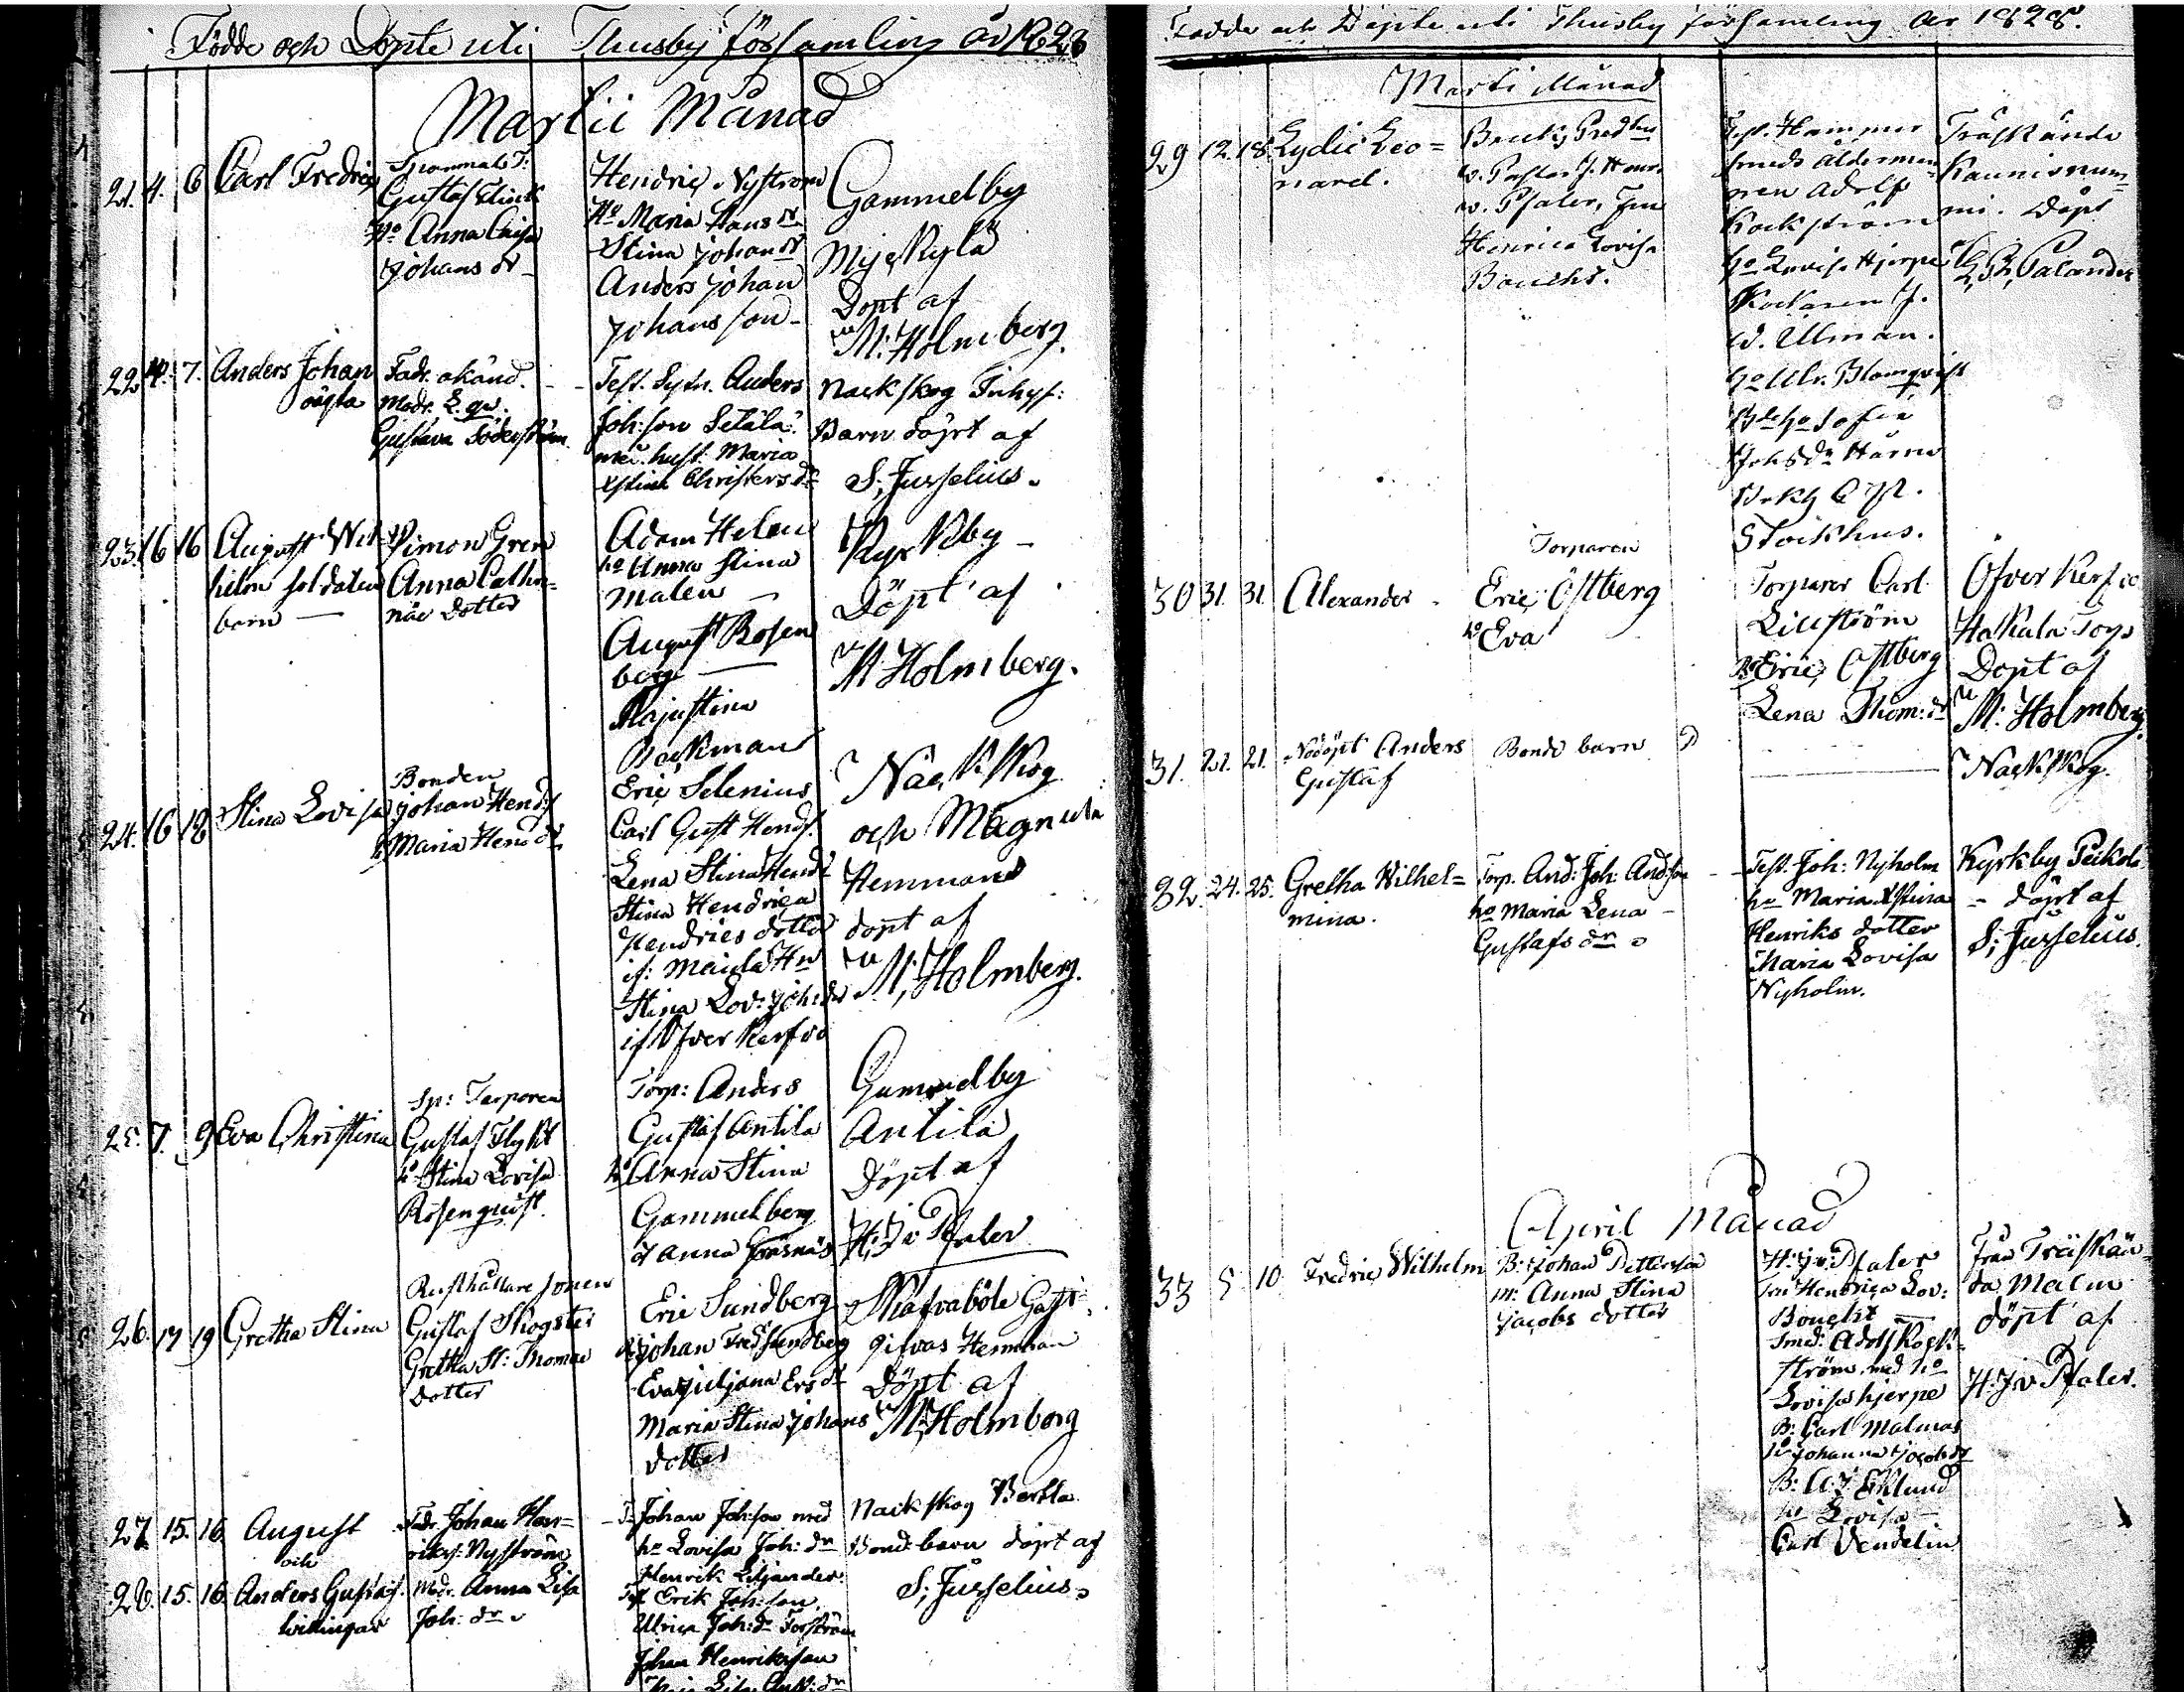 Födde och Döpte uti Thusby församling år 1828
Martii Månad
21. 4. 6 Carl Fredric
Gustaf Flink
ho Anna Caisa
Johans dr
Hendric Nyström
ho Maria Hans dr
Stina Johan dr
Anders Johan
Johansson
Gammelby
Myrkylä
Döpt af
M: Holmberg.
22 4. 7. Anders Johan
oägta
Fadr. okänd.
Modr. L. qv.
Gustava Söderström
Test. Sytn. Anders
Joh:son Setälä
med hust. Maria
Xstina Christers dr
Nackskog Inhys:
Barn döpt af
S; Jusselius.
23. 16 16 August Wil
helm soldaten
barn
Simon Gren
Anna Catha-
rinæ Dotter
Adam Helen
ho Anna Stina
Malen
August Rosen
berg
Majastina
Backman
Kyrkby
Döpt af
M Holmberg.
24. 16 18 Stina Lovisa
Bonden
Johan Hends
Maria Hend dr
Eric Selenius
Carl Gust Hends.
Lena Stina Hend dr
Stina Hendrica
Hendrics dotter
if: Maula Hn
Stina Lov: Joh: dr
if Öfver Kerfvo
Näckskog
och Magnula
Hemmans
döpt af
M; Holmberg.
25. 7. 9 Eva Christina
Sp: Torparen
Gustaf Flykt
ho Stina Lovisa
Rosenquist.
Torp: Anders
Gustaf Antila
ho Anna Stina
Gammelberg
o Anna Gräsnäs
Gammelby
Antila
Döpt af
H; J v Pfaler
26. 17 19 Gretha Stina
Rusthållare sonen
Gustaf Skogster
Gretha St: Thomæ
Dotter
Eric Sundberg
Johan Fred Sundberg
Eva Juljana Ers dr
Maria Stina Johans
dotter
Skafvaböle Gast-
gifvas Hemman
Döpt af
M; Holmberg
27. 15. 16 August
och
28. 15. 16 Anders Gustaf.
tvillingar
Fadr Johan Hen=
riks: Nyström
Modr. Anna Lisa
Joh: dr
T: Johan Joh:son med
ho Lovisa Joh: dr
Henrik Liljander
Test Erik Joh:son
Ulrica Joh: dr Forström
Johan Henriksson
Nackskog Bertla
Bonde barn döpt af
S; Jusselius.
Födde och Döpte uti Thusby församling år 1828.
Marti Månad
29 12. 18. Lydic Leo=
nard.
Bruks Pred:
v. Pastor J. Henr.
v. Pfaler, Fru
Henrica Lovisa
Boucht.
Test. Hammar
smeds ålderman
nen Adolf
Kockström
ho Lovisa Hjerpe
Kockaren J.
W. Ullman.
ho Ulr. Blomqvist
Sofia
Stockhus.
Träskända
Kaunisnum=
mi. Döpt
Palander
30 31. 31. Alexander
Torparen
Eric Östberg
ho Eva
Torparer Carl
Lillström
Eric Östberg
Lena Thom: dr
Öfver Kerfvo
Hakala Torp
Döpt af
M: Holmberg.
31. 21. 21. Nödöpt Anders
Gustaf
Bonde barn
Nackskog.
32. 24. 25. Gretha Wilhel=
mina.
Torp. And: Joh: And:son
ho Maria Lena
Gustafs dr
Test. Joh: Nyholm
ho Maria Xstina
Henriks dotter
Maria Lovisa
Nyholm.
Kyrkby Peikola
döpt af
S; Jusselius.
April Månad
33 5 10 Fredric Wilhelm
B: Johan Petterson
m: Anna Stina
Jacobs dotter
H: J v: Pfaler
Fru Hendrica Lov:
Boucht
Smed: Adolf Kock=
ström med ho
Lovisa hjerpe
B: Carl Malmas
ho Johanna Jacobs dr
B: A: J: Eklund
ho Lovisa
Carl Vendelin
från Träskän=
da Malm
döpt af
H: J v Pfaler.